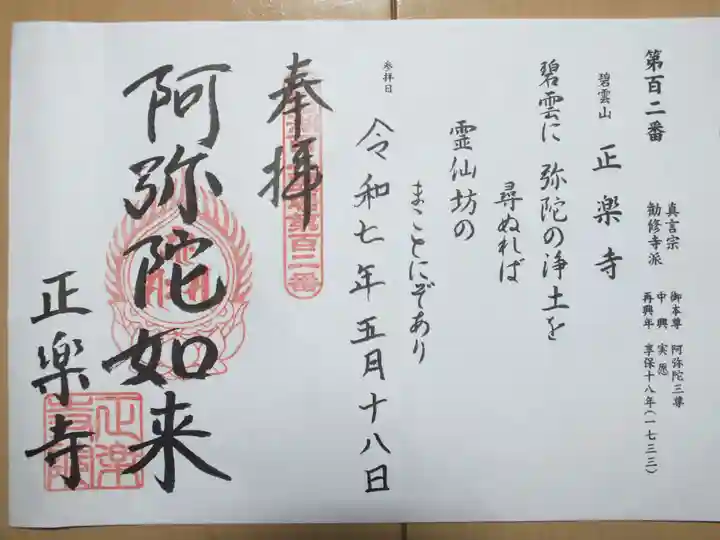 第百二番
真言宗
勧修寺派
御本尊 阿弥陀三尊
中興 実愿
再興年 享保十八年(一七三三)
碧雲山 正楽寺
碧雲に 弥陀の浄土を
尋ぬれば
霊仙坊の
まことにぞあり
参拝日 令和七年五月十八日
奉拝
百二番
阿弥陀如来
正楽寺